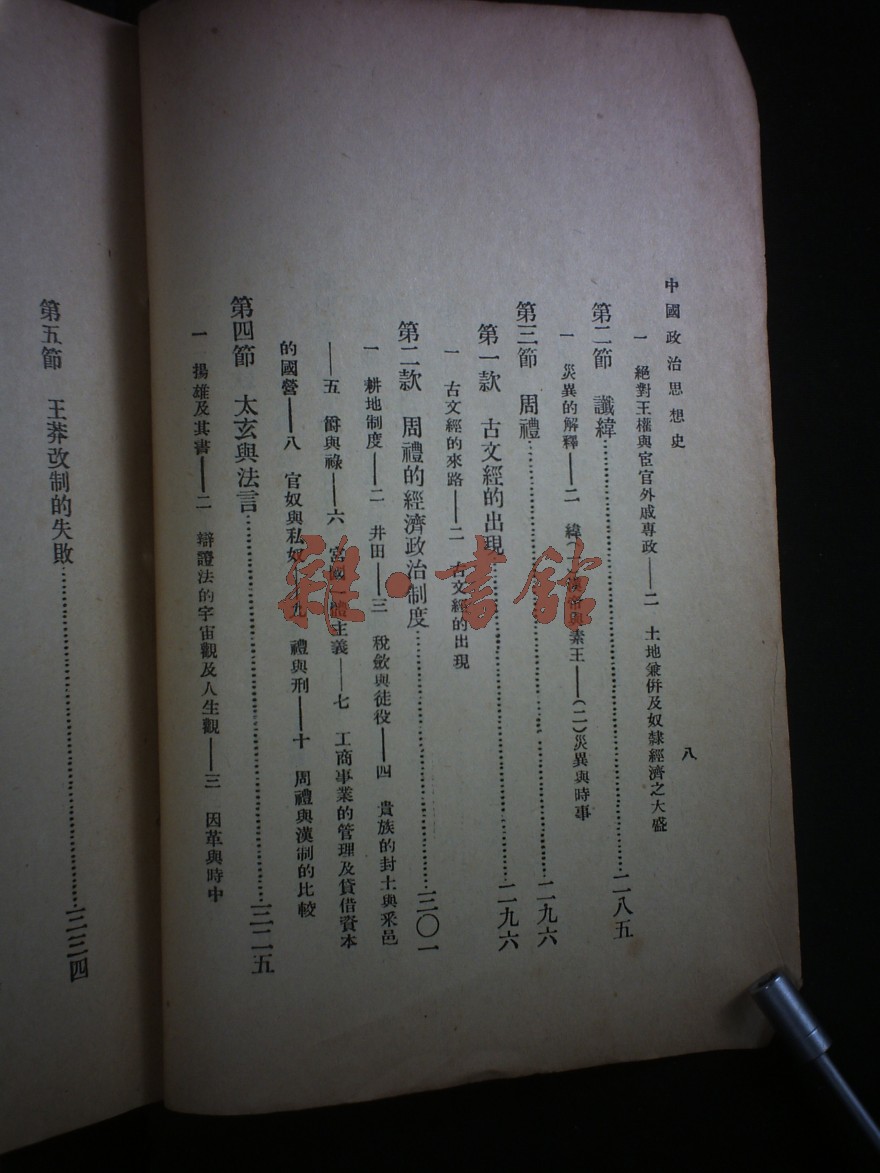 中國政治思想史
八
一 絕對王權與宦官外戚專政——二 土地兼併及奴隸經濟之大盛
第二節 讖緯……二八五
一 災異的解釋——二 緯(一)漢帝與素王——(二)災異與時事
第三節 周禮……二九六
第一款 古文經的出現……二九六
一 古文經的來路——二 古文經的出現
第二款 周禮的經濟政治制度……三〇一
一 耕地制度——二 井田——三 稅斂與徒役——四 貴族的封土與釆邑
——五 爵與祿——六 宮國一體主義——七 工商事業的管理及貸借資本
的國營——八 官奴與私奴——九 禮與刑——十 周禮與漢制的比較
第四節 太玄與法言……三二五
一 揚雄及其書——二 辯證法的宇宙觀及人生觀——三 因革與時中
第五節 王莽改制的失敗……三三四
雜·書館